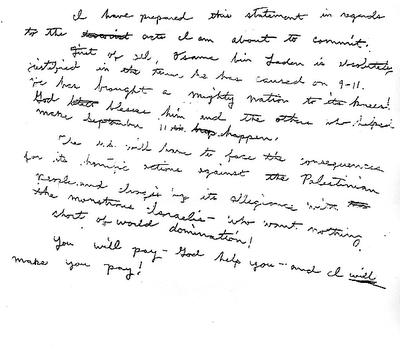 I have prepared this statement in regards
to the acts I am about to commit.
First of all, Osama bin Laden is absolutely
justified in the terror he has caused on 9-11.
He has brought a mighty nation to its knees!
God blesses him and the others who helped
make September 11 happen.
The U.S. will have to face the consequences
for its horrific actions against the Palestinian
people and by its allegiance with
the monstrous Israelis - who want nothing
short of world domination!
You will pay - God help you - and I will
make you pay!